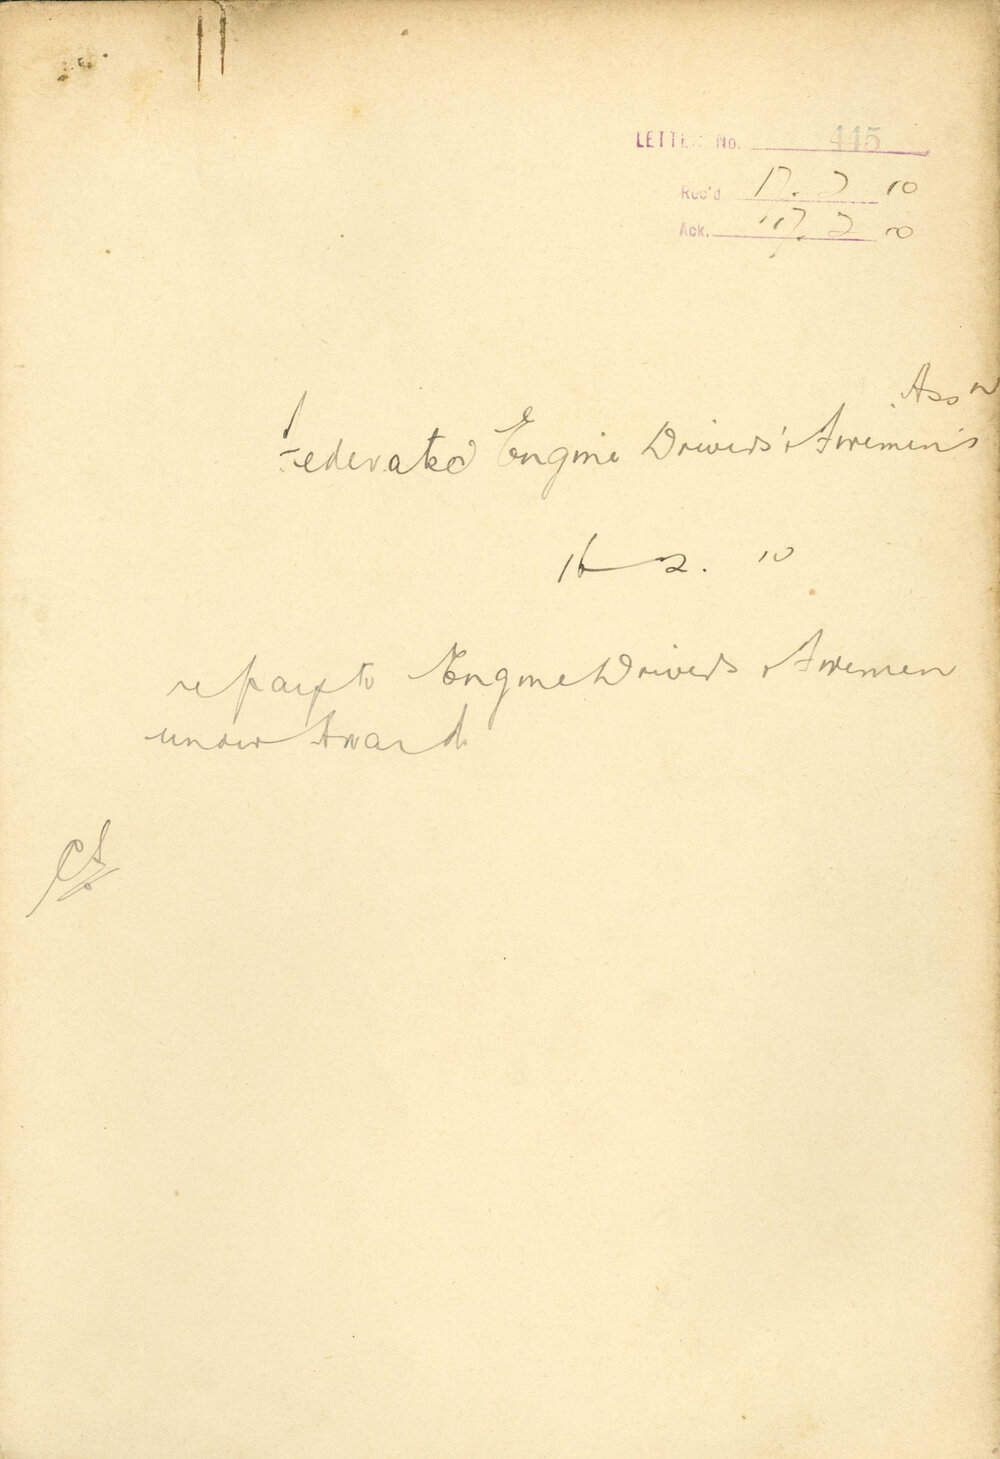 LETTER No. 445
Rec'd 17. 2 10
Ack. 17. 2 10
Assn
Federated Engine Drivers' & Firemen's
16 2. 10
re pay to Engine Drivers & Firemen
under Award